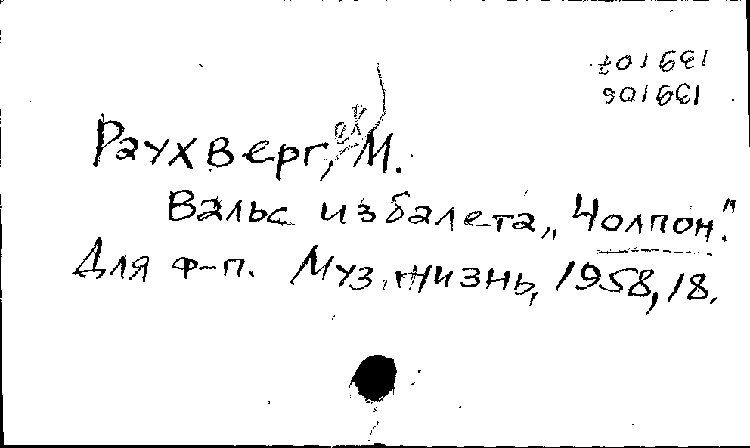 139107
139106
Раухверг, М.
Вальс из балета „Чолпон".
Для ф-п. Муз. жизнь, 1958, 18.